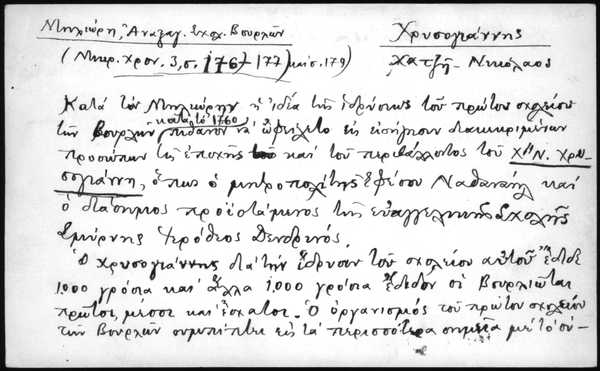 Μηλιώρη, Ἀναξαγ. Σχολ. Βουρλῶν
Χρυσογιάννης
(Μικρ. Χρον. 3, σ. 176-177) καὶ σ. 179)
Χατζῆ-Νικόλαος
Κατὰ τὸν Μηλιώρην ἡ ἰδέα τῆς ἱδρύσεως τοῦ πρώτου σχολείου
κατὰ τὸ 1760
τῶν Βουρλῶν πιθανὸν νὰ ὠφείλετο εἰς εἰσήγησιν διακεκριμένων
προσώπων τῆς ἐποχῆς καὶ τοῦ περιβάλλοντος τοῦ Χ΄΄Ν. Χρυ-
σογιάννη, ὅπως ὁ μητροπολίτης Ἐφέσου Ναθαναὴλ καὶ
ὁ διάσημος προϊστάμενος τῆς εὐαγγελικῆς Σχολῆς
Σμύρνης Ἱερόθεος Δενδρινός.
Ὁ Χρυσογιάννης διὰ τὴν ἵδρυσιν τοῦ σχολείου αὐτοῦ "ἔδιδε
1.000 γρόσια καὶ ἄλλα 1.000 γρόσια ἔδιδον οἱ Βουρλιῶται
πρῶτοι, μέσοι καὶ ἔσχατοι. Ὁ ὀργανισμὸς τοῦ πρώτου σχολείου
τῶν Βουρλῶν συμπίπτει εἰς τὰ περισσότερα σημεῖα μὲ τὸ σύ-